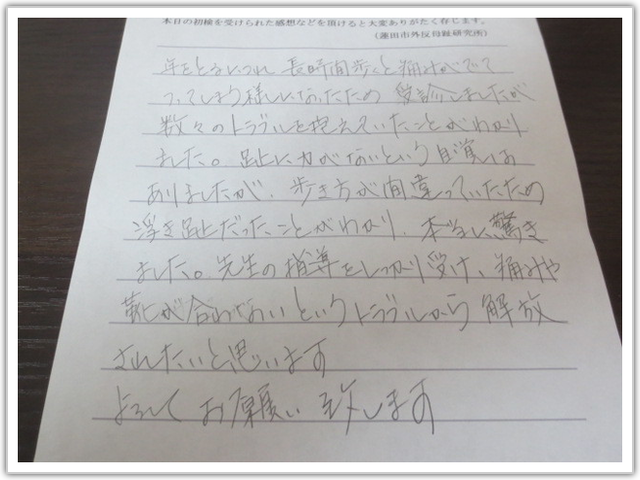 本日の初検を受けられた感想などを頂けると大変ありがたく存じます。
(蓮田市外反母趾研究所)
年をとるにつれ長時間歩くと痛みがでて
つってしまう様になったため受診しましたが
数々のトラブルを抱えていたことがわかり
ました。趾に力がないという自覚は
ありましたが、歩き方が間違っていたため
浮き趾だったことがわかり、本当に驚き
ました。先生の指導をしっかり受け、痛みや
靴が合わないというトラブルから解放
されたいと思います
よろしくお願い致します